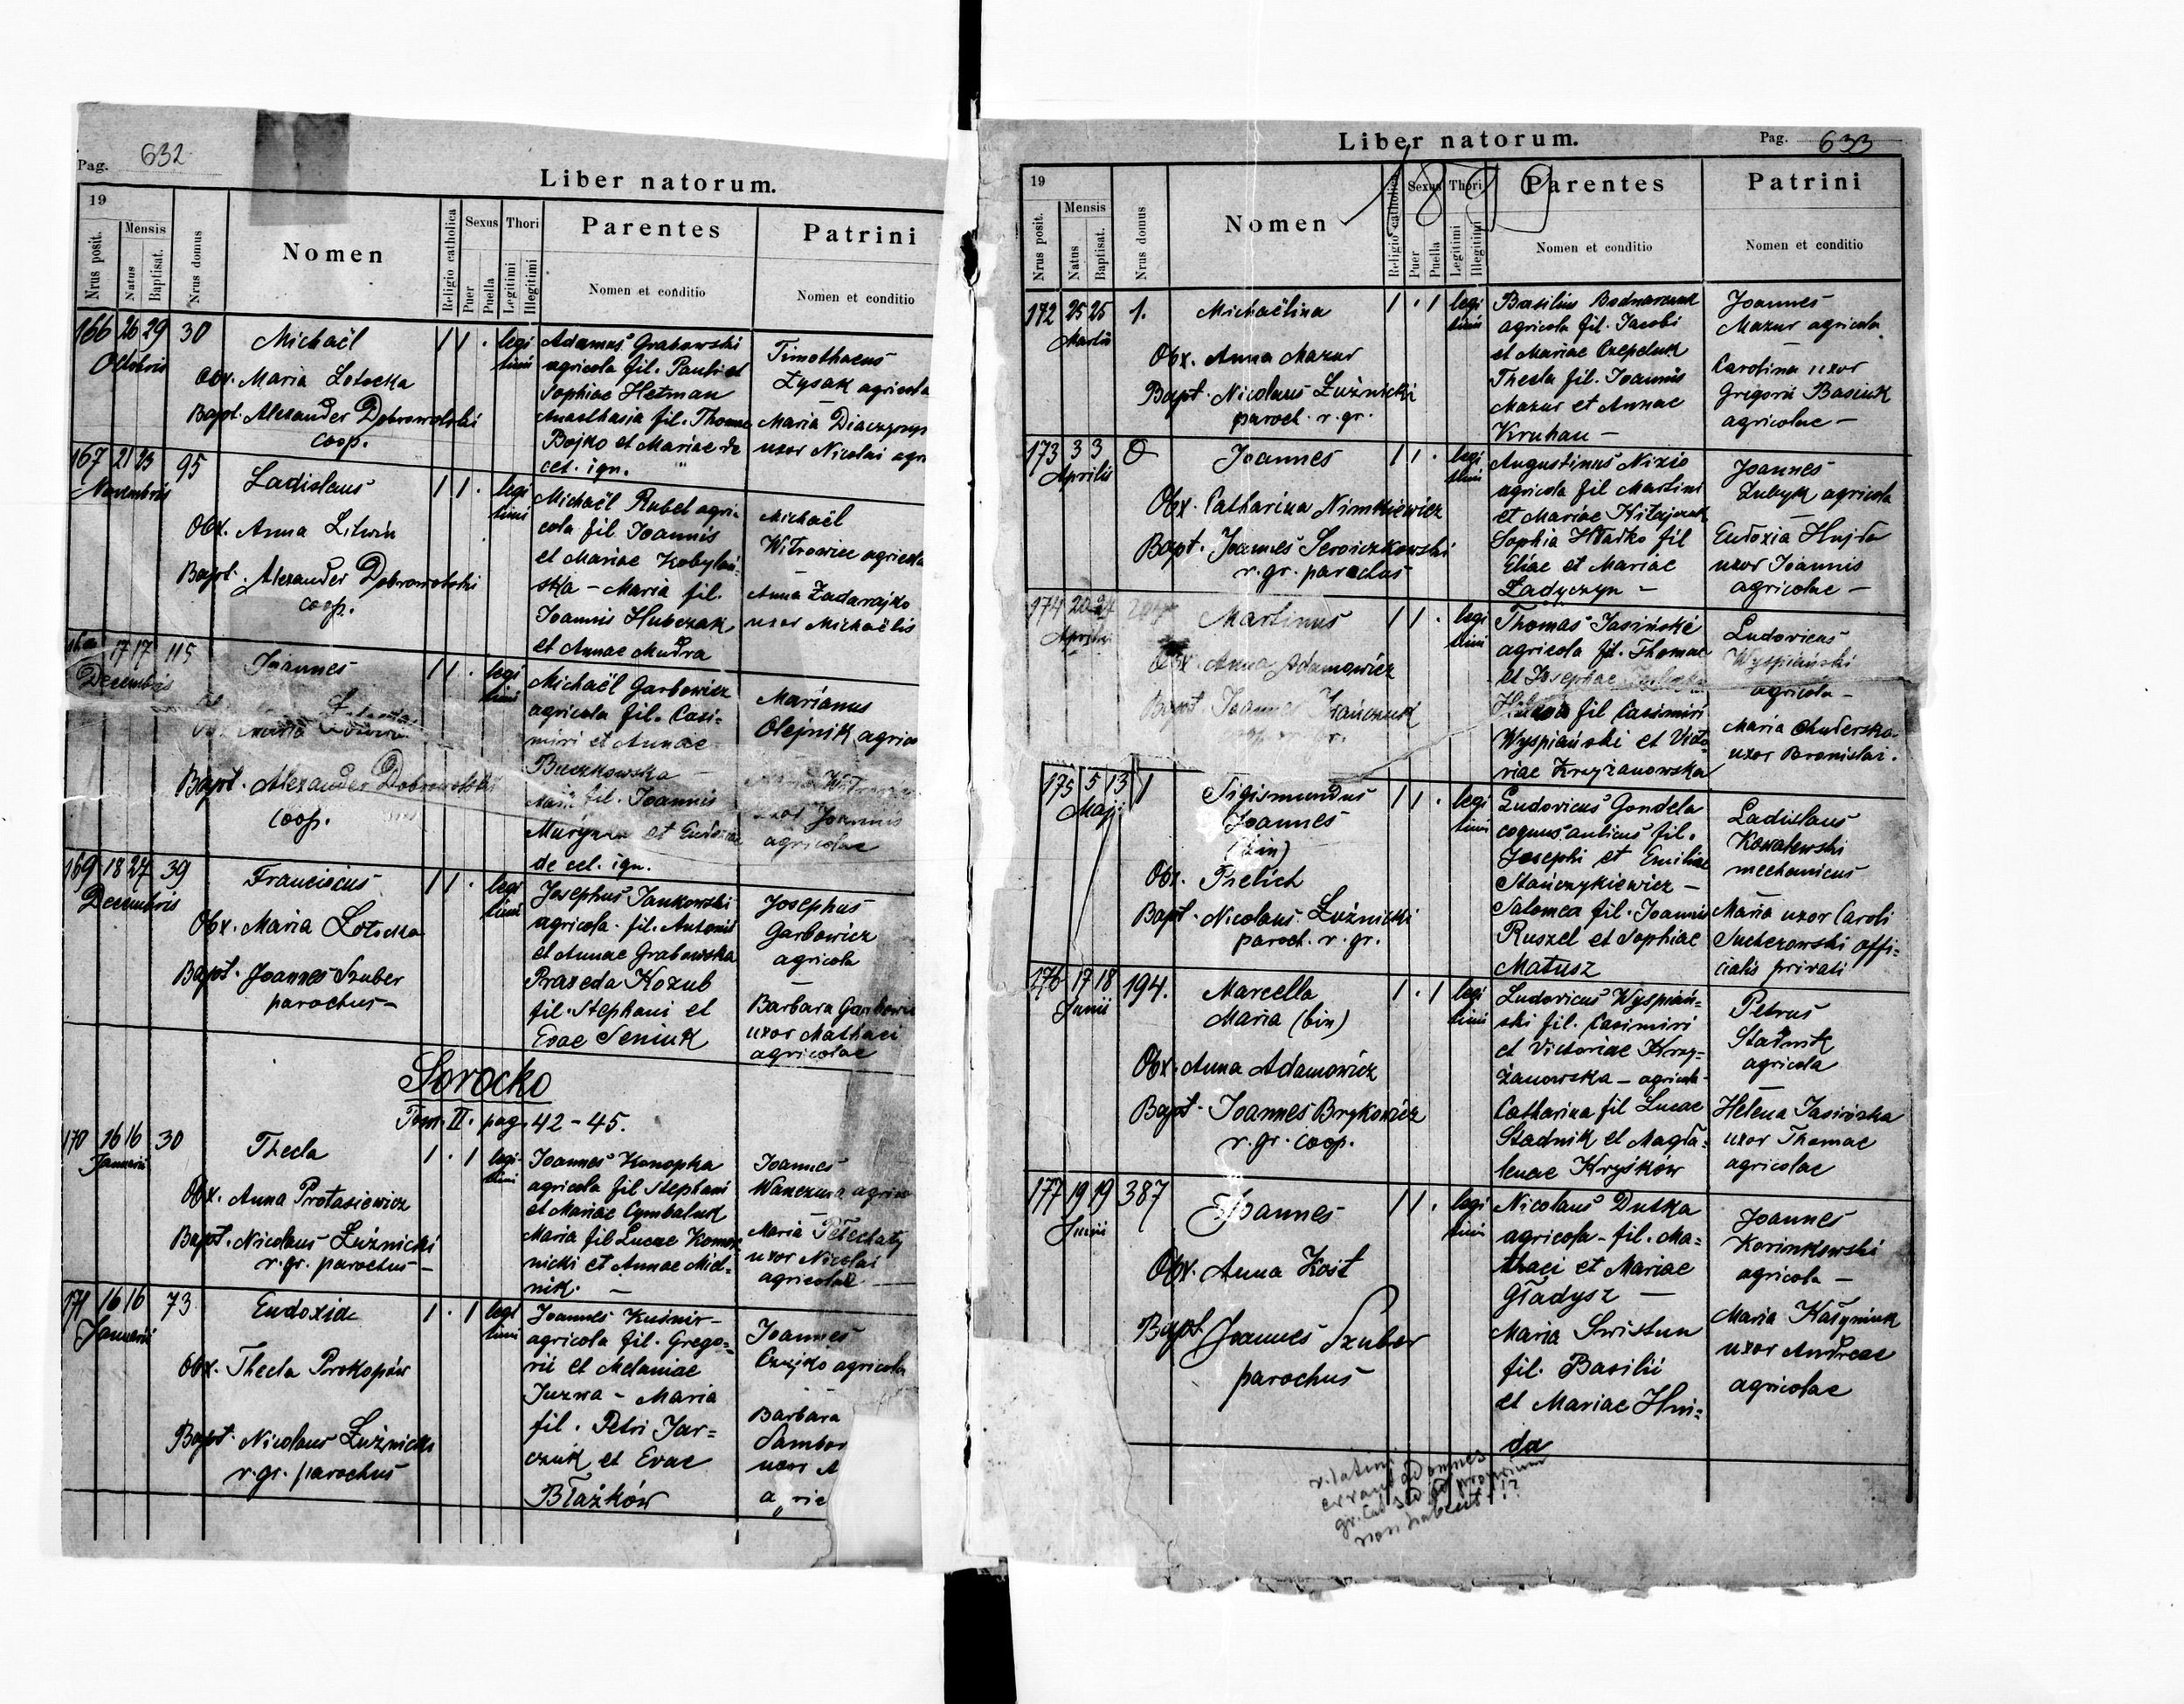 Pag. 632
Liber natorum.
19
Nrus posit.
Mensis
Natus
Baptisat.
Nrus domus
Nomen
Religio catholica
Sexus
Puer
Puella
Thori
Legitimi
Illegitimi
Parentes
Nomen et conditio
Patrini
Nomen et conditio
166 26 29 30 Michaël 1 1 . legi
Octobris timi
Obx. Maria Łotocka
Bapt. Alexander Dobrowolski
coop.
Adamus Grabowski
agricola fil. Pauli et
Sophiae Hetman
Anasthasia fil. Thomae
Bojko et Mariae de
cet. ign.
Timothaeus
Łysak agricola
Maria
uxor Nicolai agri
167 21 23 95 Ladislaus 1 1 . legi
Novembris timi
Obx. Anna Litwin
Bapt. Alexander Dobrowolski
coop.
Michaël Rubel agri-
cola fil Joannis
et Mariae Kobylań-
ska - Maria fil.
Joannis Hubczak
et Annae Mudra
Michaël
Witrowicz agricola
Anna Zadarajko
uxor Michaëlis
17 17 115 Joannes 1 1 . legi
Decembris timi
Bapt. Alexander Dobrowolski
coop.
Michaël Garbowicz
agricola fil. Casi-
miri et Annae
Buczkowska -
Maria fil. Joannis
et Eudoxiae
de cet. ign.
Marianus
Olejnik agricola
uxor Joannis
agricolae
169 18 27 39 Franciscus 1 1 . legi
Decembris timi
Obx. Maria Łotocka
Bapt. Joannes Szuber
parochus -
Josephus Jankowski
agricola fil. Antonii
et Annae Grabowska
Praxeda Kozub
fil. Stephani et
Evae Seniuk
Josephus
Garbowicz
agricola
Barbara Garbowicz
uxor Mathaei
agricolae
Sorocko
Tom. II. pag. 42-45.
170 16 16 30 Thecla 1 . 1 legi-
Januarii timi
Obx. Anna Protasiewicz
Bapt. Nicolaus Łuźnicki
r. gr. parochus -
Joannes Konopka
agricola fil Stephani
et Mariae Cymbaluk
Maria fil Lucae Komar-
nicki et Annae Miel-
nik. -
Joannes
Wanczura agricola
Maria Pełechatij
uxor Nicolai
agricolae
171 16 16 73 Eudoxia 1 . 1 legi
Januarii timi
Obx. Thecla Prokopów
Bapt. Nicolaus Łuźnicki
r. gr. parochus
Joannes Kuśnir -
agricola fil. Grego-
rii et Melaniae
Juzwa - Maria
fil. Petri Jar-
czuk et Evae
Błażków
Joannes
Czujko agricola
Barbara
Sambor
uxor A
agric
Liber natorum.
Pag. 633
1899
19
Nrus posit.
Mensis
Natus
Baptisat.
Nrus domus
Nomen
Religio catholica
Sexus
Puer
Puella
Thori
Legitimi
Illegitimi
Parentes
Nomen et conditio
Patrini
Nomen et conditio
172 25 25 1. Michaëlina 1 . 1 legi
Martii timi
Obx. Anna Mazur
Bapt. Nicolaus Łuźnicki
paroch. r. gr.
Basilius Bodnarczuk
agricola fil. Jacobi
et Mariae Czepeluk
Thecla fil. Joannis
Mazur et Annae
Kruhan -
Joannes
Mazur agricola
Carolina uxor
Gregorii Basiuk
agricolae -
173 3 3 8 Joannes 1 1 . legi
Aprilis timi
Obx. Catharina Nimkiewicz
Bapt. Joannes Seroiczkowski
r. gr. parochus
Augustinus Nizio
agricola fil Martini
et Mariae Kitajczuk
Sophia Hładko fil
Eliae et Mariae
Ładyczyn -
Joannes
Zubyk agricola
Eudoxia Hujda
uxor Joannis
agricolae -
174 20 24 Martinus 1 1 . legi
Aprilis timi
Obx. Anna Adamowicz
Bapt. Joannes
Thomas Jasiński
agricola fil. Thomae
et Josephae
Helena fil Casimiri
Wyspiański et Victo-
riae Krzyżanowska
Ludovicus
Wyspiański
agricola -
Maria Chuderska
uxor Bronislai.
175 5 13 1 Sigismundus 1 1 . legi
Maji timi
Joannes
(bin)
Obx. Trelich
Bapt. Nicolaus Łuźnicki
paroch. r. gr.
Ludovicus Gondela
coquus aulicus fil.
Josephi et Emiliae
Stańczykiewicz -
Salomea fil. Joannis
Ruszel et Sophiae
Matusz
Ladislaus
Kowalewski
mechanicus
Maria uxor Caroli
Sucherowski offi-
cialis privati
176 17 18 194. Marcella 1 . 1 legi
Junii timi
Maria (bin)
Obx. Anna Adamowicz
Bapt. Joannes Brykowicz
r. gr. coop.
Ludovicus Wyspiań-
ski fil. Casimiri
et Victoriae Krzy-
żanowska - agricola
Catharina fil Lucae
Stadnik et Magda-
lenae Kryśków
Petrus
Stadnik
agricola
Helena Jasińska
uxor Thomae
agricolae
177 19 19 387 Joannes 1 1 . legi
Junii timi
Obx. Anna Kost
Bapt Joannes Szuber
parochus
Nicolaus Dutka
agricola - fil. Ma-
thaei et Mariae
Gładysz -
Maria Swistun
fil. Basilii
et Mariae Hni-
da
Joannes
Korinkowski
agricola -
Maria Kaszyniuk
uxor Andreae
agricolae
r. latini
errant ad omnes
gr. cat sed ad proprium
non habent !?